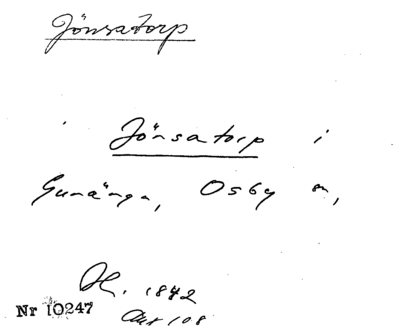 Jönsatorp
Jönsatorp i
Gunänga, Osby sn,
Hl. 1842
Akt 108
Nr 10247